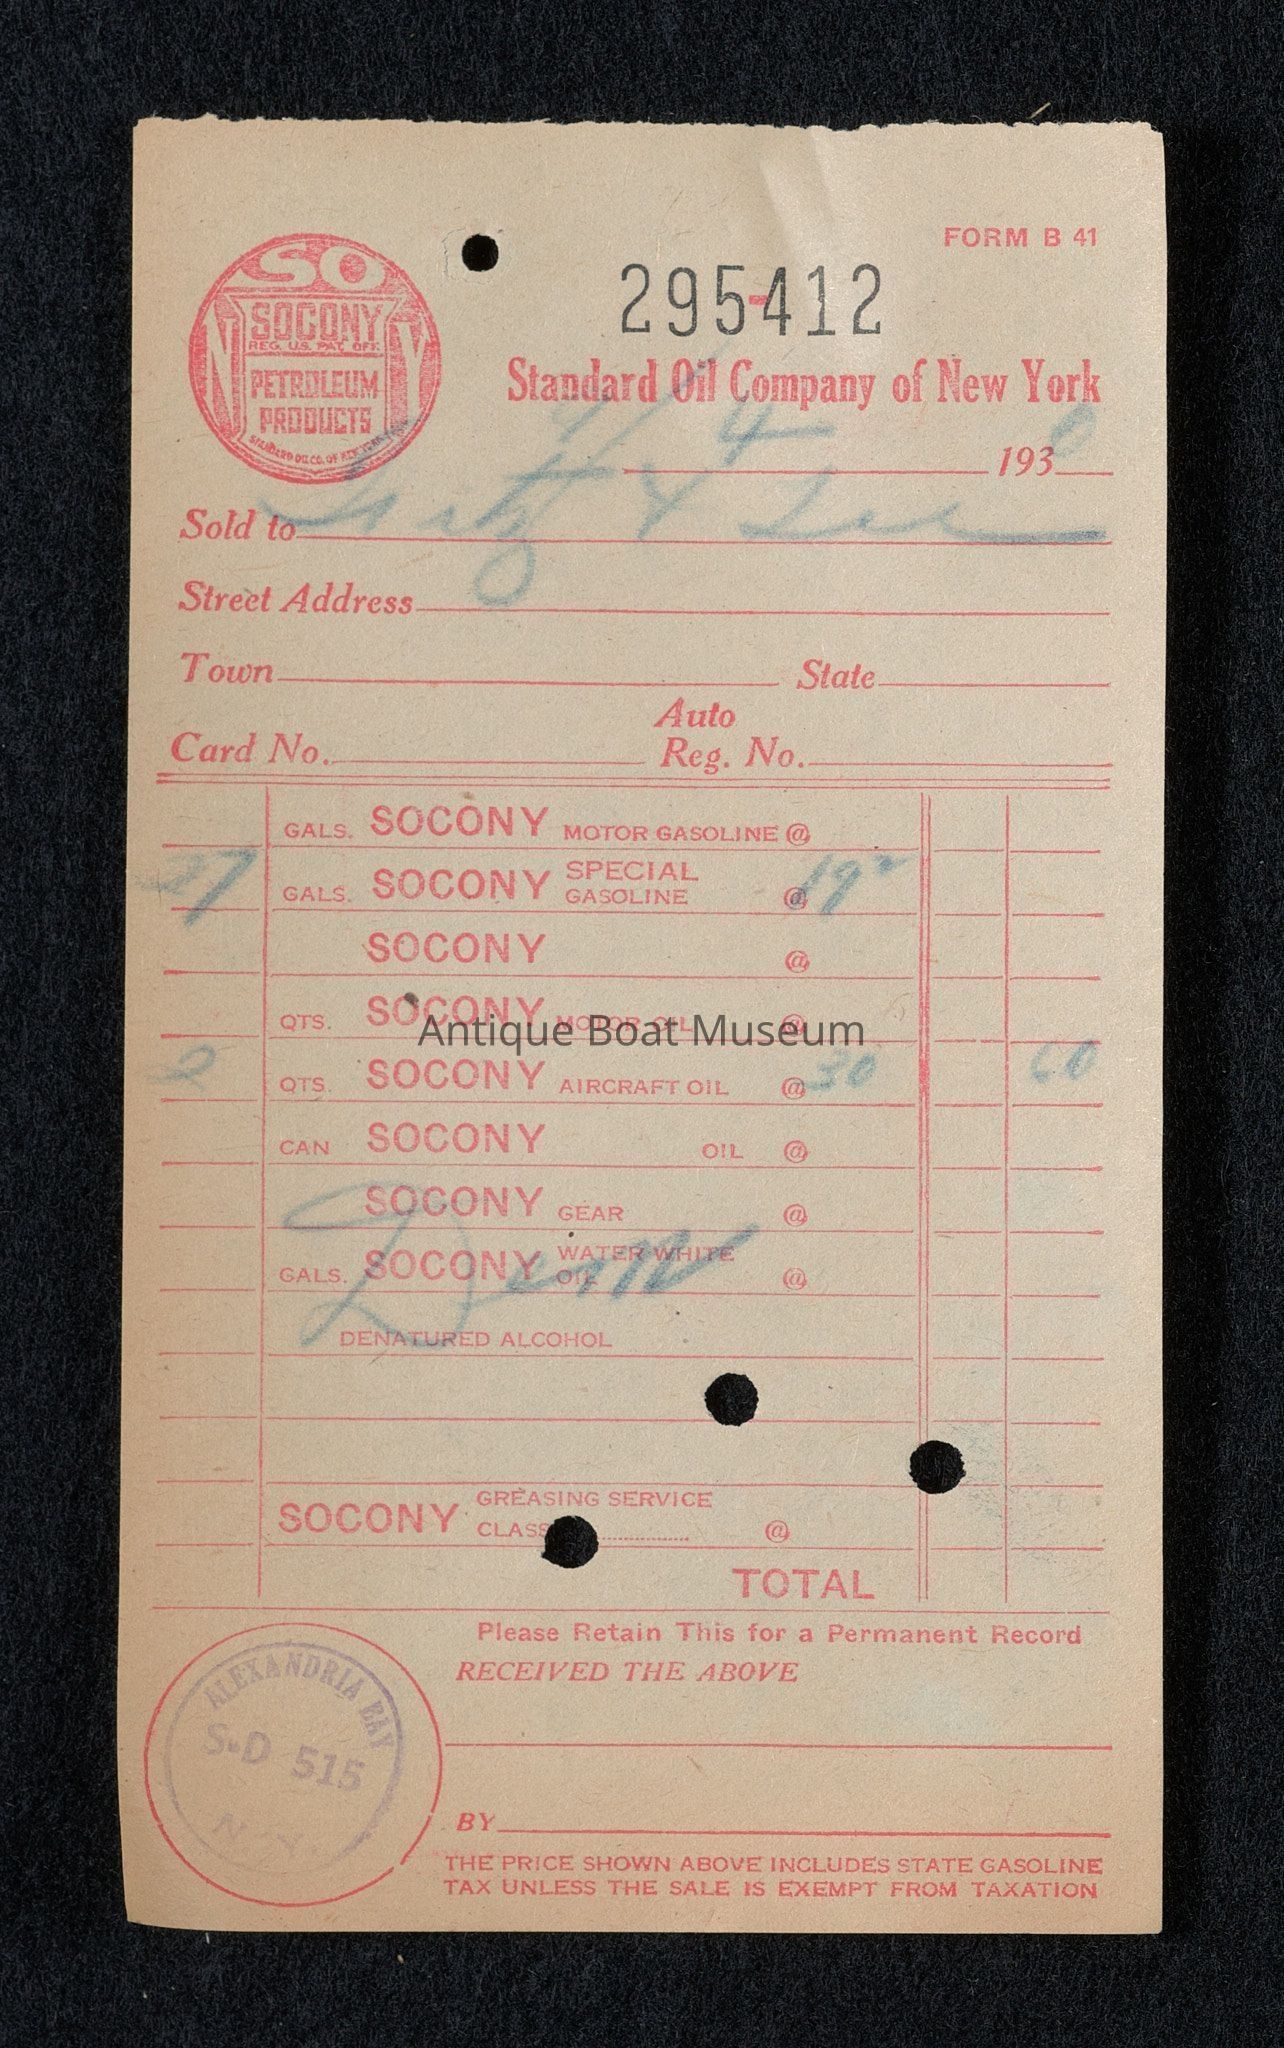 FORM B 41
SO
SOCONY
REG. U.S. PAT. OFF.
PETROLEUM
PRODUCTS
NY
STANDARD OIL CO. OF NEW YORK
295-412
Standard Oil Company of New York
7/4 1930
Sold to
Street Address
Town State
Auto
Card No. Reg. No.
GALS. SOCONY MOTOR GASOLINE @
27 GALS. SOCONY SPECIAL GASOLINE @ 19²
SOCONY @
QTS. SOCONY MOTOR OIL @
Antique Boat Museum
2 QTS. SOCONY AIRCRAFT OIL @ 30 60
CAN SOCONY OIL @
SOCONY GEAR @
GALS. SOCONY WATER WHITE OIL @
DENATURED ALCOHOL
SOCONY GREASING SERVICE
CLASS @
TOTAL
Please Retain This for a Permanent Record
RECEIVED THE ABOVE
ALEXANDRIA BAY
S-D 515
N.Y.
BY
THE PRICE SHOWN ABOVE INCLUDES STATE GASOLINE
TAX UNLESS THE SALE IS EXEMPT FROM TAXATION